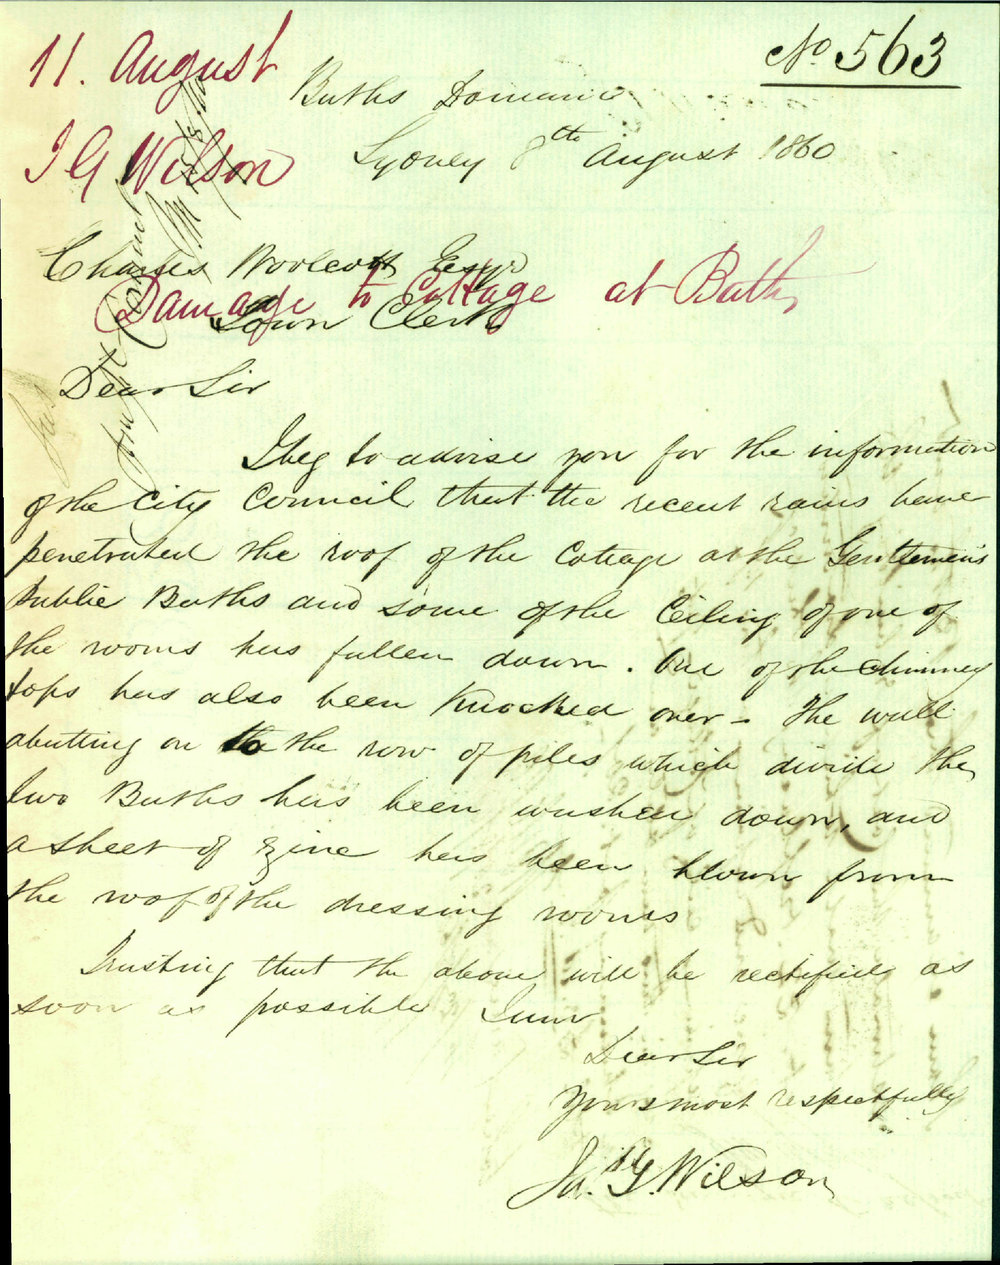 11. August
No 563
Baths Domain
J G Wilson
Sydney 8th August 1860
Charles Woolcott Esqr
Damage to Cottage at Baths
Town Clerk
Dear Sir
I beg to advise you for the information
of the City Council that the recent rains have
penetrated the roof of the Cottage at the Gentlemen's
Public Baths and some of the Ceiling of one of
the rooms has fallen down. One of the chimney
tops has also been Knocked over - The wall
abutting on to the row of piles which divide the
two Baths has been washed down, and
a sheet of Zinc has been blown from
the roof of the dressing rooms
Trusting that the above will be rectified as
soon as possible I am
Dear Sir
Yours most respectfully
G. Wilson